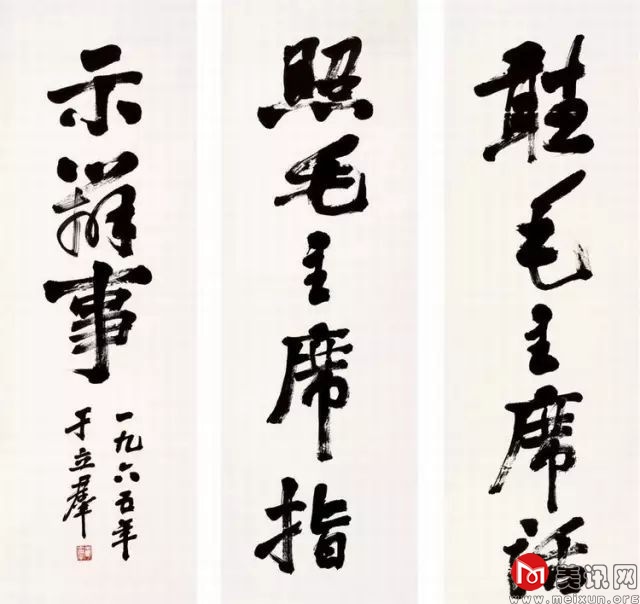 聽毛主席話
照毛主席指
示辦事
一九六五年
于立羣
美讯网
www.meixun.org